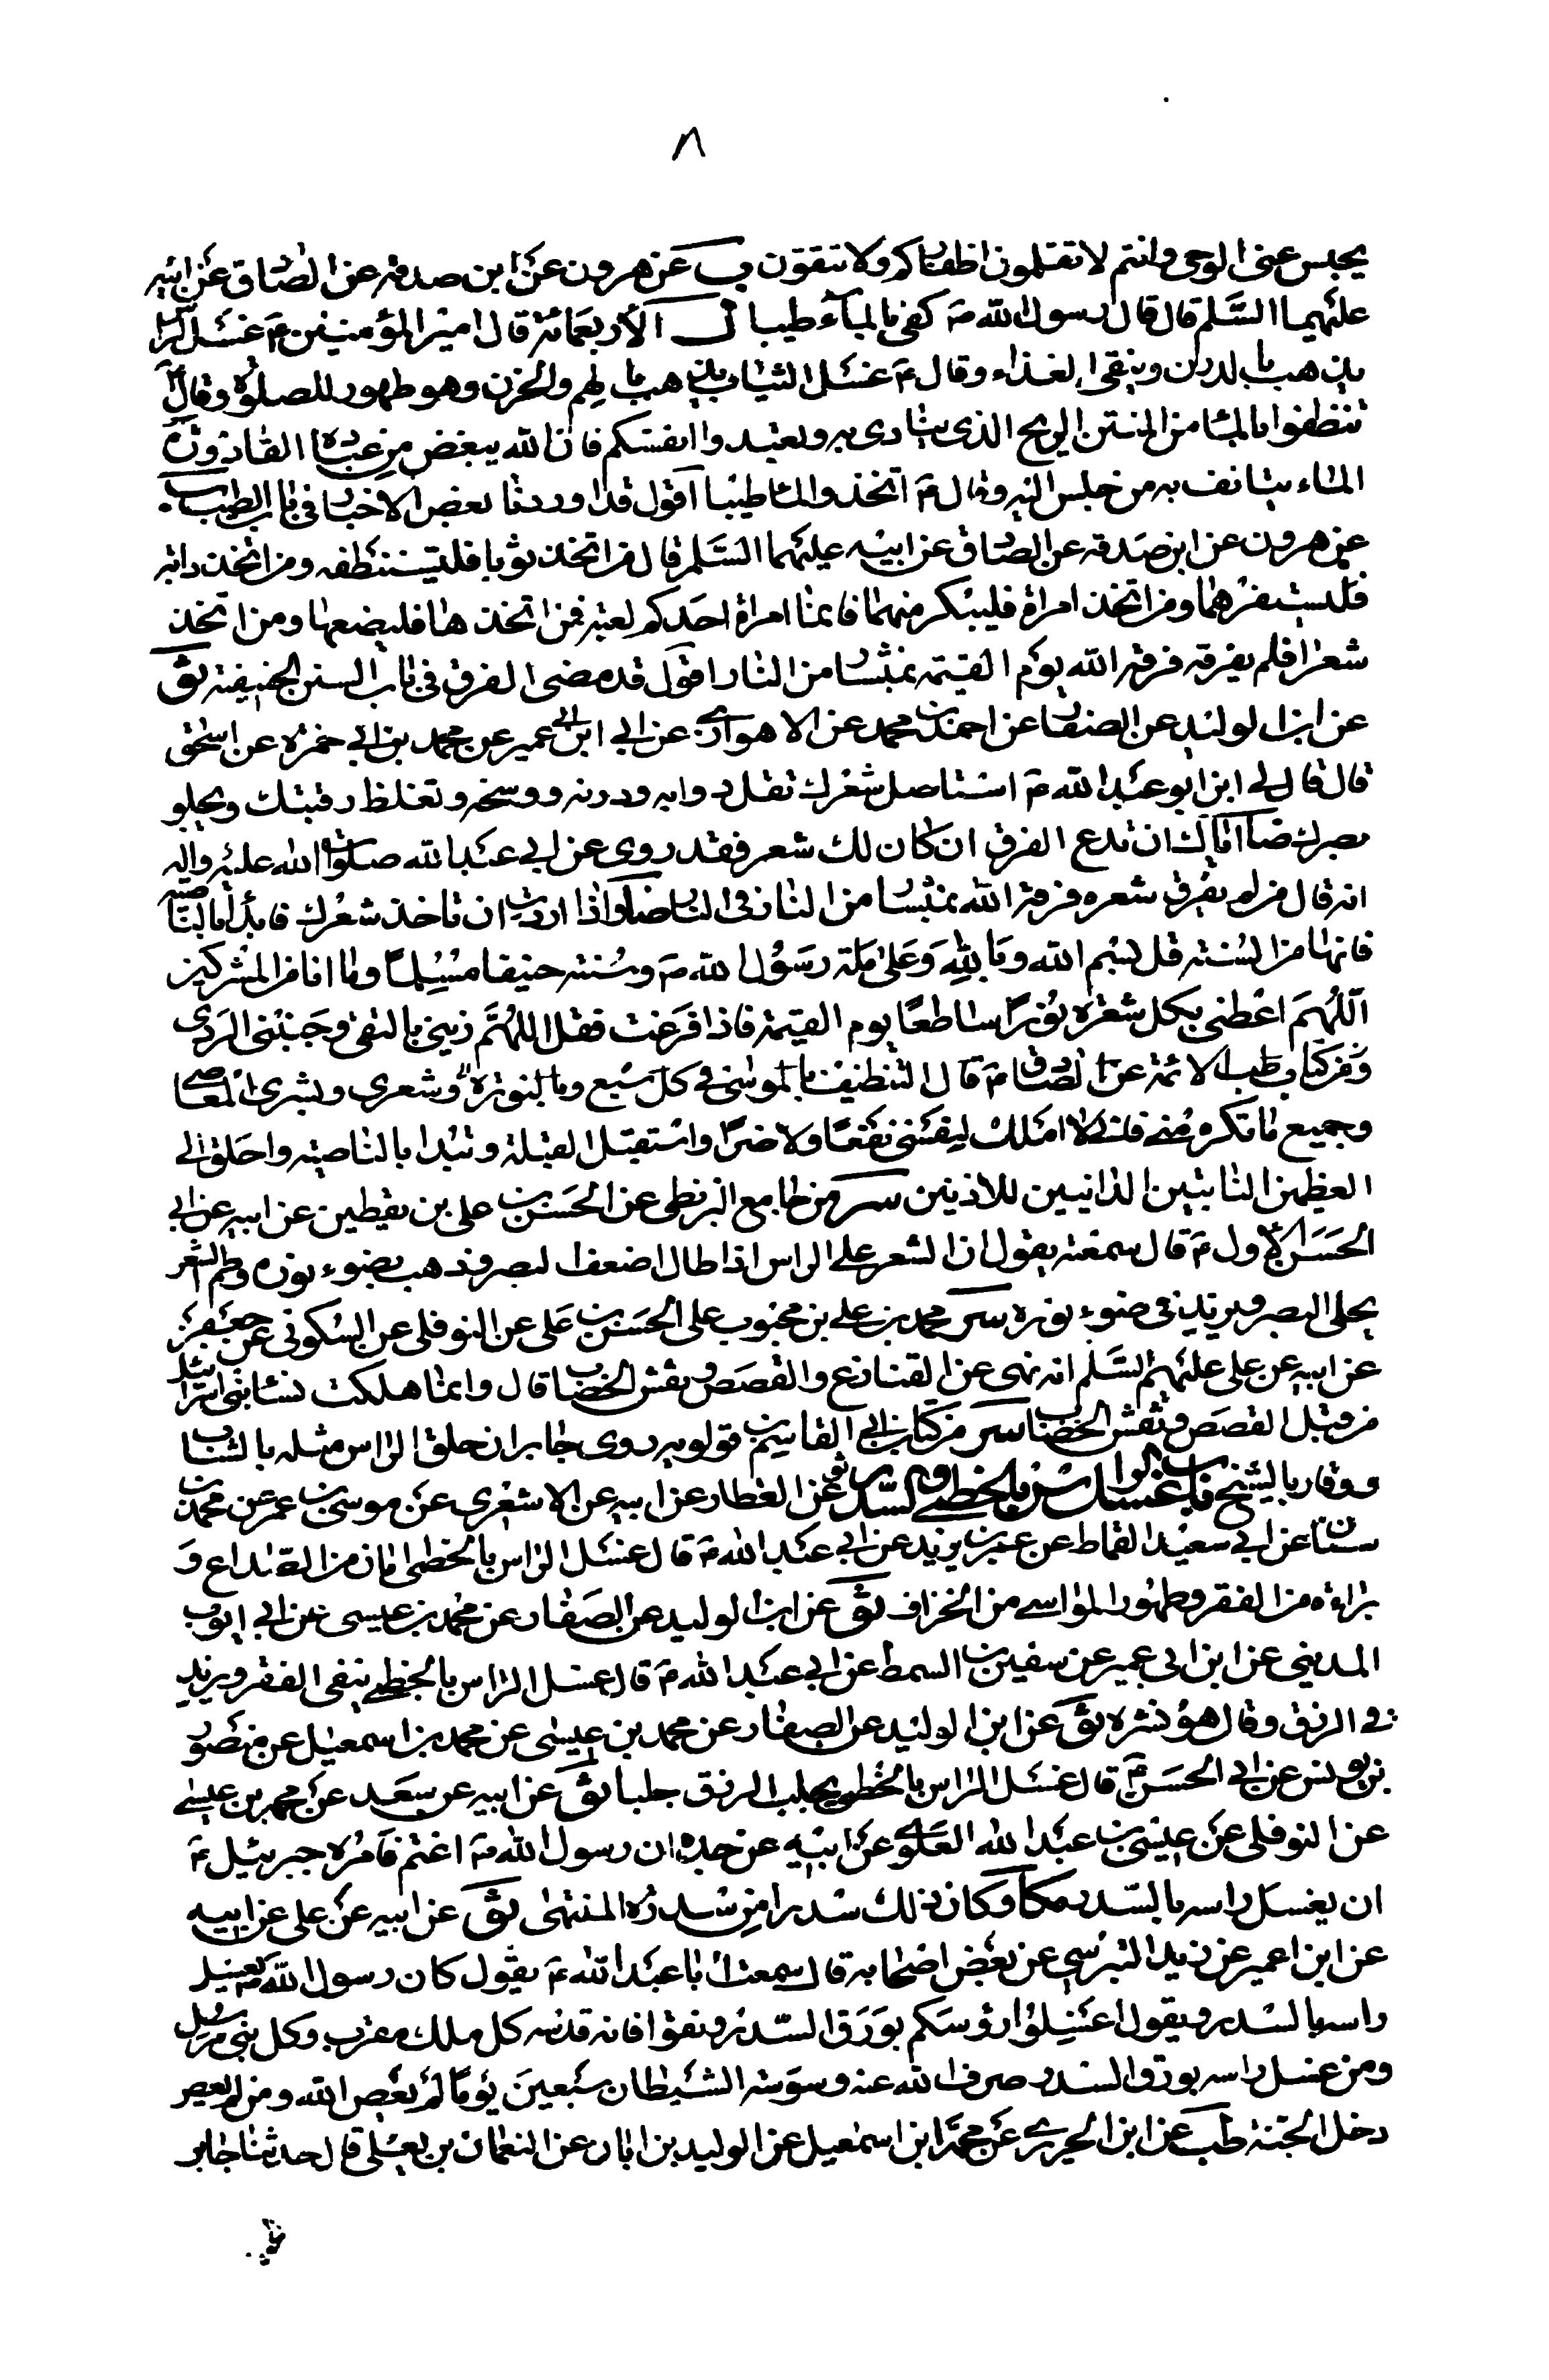 ٨
يحبس عنى الوحى وانتم لا تقلمون اظفاركم ولا تنقون ب عن هرون عن ابن صدقة عن الصادق عن ابيه
عليهما السلم قال قال رسول الله ص كفى بالماء طيبا ل الاربعمائة قال امير المؤمنين ع غسل الراس
يذهب بالدرن وينقى الغذاء وقال ع غسل الثياب يذهب بالهم والحزن وهو طهور للصلوة وقال ع
تنظفوا بالماء من المنتن الريح الذى يتاذى به وتعهدوا انفسكم فان الله يبغض من عباده القاذورة
الذى يتانف به من جلس اليه وقال ع اتخذوا الماء طيبا اقول قد اوردنا بعض الاخبار فى باب الطيب ب
عن هرون عن ابن صدقة عن الصادق عن ابيه عليهما السلم قال من اتخذ ثوبا فليستنظفه ومن اتخذ دابة
فليستفرهها ومن اتخذ امراة فليكرمها فانما امراة احدكم لعبة فمن اتخذها فلا يضعها ومن اتخذ
شعرا فلم يفرقه فرقه الله يوم القيمة بمنشار من النار اقول قد مضى الفرق فى باب السنن الحنيفية ثو
عن ابن الوليد عن الصفار عن احمد بن محمد عن الاهوازى عن ابن ابى عمير عن محمد بن ابى حمزة عن اسحق
قال قال لى ابو عبد الله ع استاصل شعرك تقل دوابه ودرنه ووسخه وتغلظ رقبتك ويجلو
بصرك ضا اياك ان تدع الفرق ان كان لك شعر فقد روى عن ابى عبد الله صلوات الله عليه واله
انه قال من لم يفرق شعره فرقه الله بمنشار من النار فى النار ضا واذا اردت ان تاخذ شعرك فابدا بالناصية
فانها من السنة قل بسم الله وبالله وعلى ملة رسول الله ص وسنته حنيفا مسلما وما انا من المشركين
اللهم اعطنى بكل شعرة نورا ساطعا يوم القيمة فاذا فرغت فقل اللهم زينى بالتقى وجنبنى الردى
وجنب شعرى وبشرى المعاصى
وجميع ما تكره منى فانى لا املك لنفسى نفعا ولا ضرا واستقبل القبلة وتبدا بالناصية واحلق الى
العظمين النابتين الدانيين للاذنين سر من جامع البزنطى عن الحسن بن على بن يقطين عن ابيه عن ابى
الحسن الاول ع قال سمعته يقول ان الشعر على الراس اذا طال اضعف البصر وذهب بضوء نوره وطم الشعر
يجلى البصر ويزيد فى ضوء نوره سر محمد بن على بن محبوب على الحسن بن على عن النوفلى عن السكونى عن جعفر
عن ابيه عن على عليهم السلم انه نهى عن القنازع والقصص ونقش الخضاب قال وانما هلكت نساء بنى اسرائيل
من قبل القصص ونقش الخضاب سر من كتاب ابى القاسم بن قولويه روى جابر ان حلق الراس مثلة بالشاب
ووقار بالشيخ باب غسل الراس بالخطمى والسدر ثو عن العطار عن ابيه عن الاشعرى عن موسى بن عمر عن محمد بن
سنان عن ابى سعيد القماط عن عمر بن يزيد عن ابى عبد الله ع قال غسل الراس بالخطمى امان من الصداع و
براءة من الفقر وطهور للراس من الحزاز ثو عن ابن الوليد عن الصفار عن محمد بن عيسى عن ابى ايوب
المدينى عن ابن ابى عمير عن سفين السمط عن ابى عبد الله ع قال غسل الراس بالخطمى ينفى الفقر ويزيد
فى الرزق وقال هو نشرة ثو عن ابن الوليد عن الصفار عن محمد بن عيسى عن محمد بن اسمعيل عن منصور
بن يونس عن ابى الحسن ع قال غسل الراس بالخطمى يجلب الرزق جلبا ثو عن ابيه عن سعد عن محمد بن عيسى
عن النوفلى عن عيسى بن عبد الله العلوى عن ابيه عن جده ان رسول الله ص اغتم فامره جبرئيل ع
ان يغسل راسه بالسدر وكان ذلك سدرا من سدرة المنتهى ثو عن ابيه عن على عن ابيه
عن ابن ابى عمير عن زيد النرسى عن بعض اصحابه قال سمعت ابا عبد الله ع يقول كان رسول الله ص يغسل
راسه بالسدر ويقول اغسلوا رؤسكم بورق السدر ونقوا فانه قدسه كل ملك مقرب وكل نبى مرسل
ومن غسل راسه بورق السدر صرف الله عنه وسوسة الشيطان سبعين يوما لم يعص الله ومن لم يعص
دخل الجنة طب عن ابن الحريرى عن محمد ابن اسمعيل عن الوليد بن ابان عن النعمان بن يعلى قال حدثنا جابر